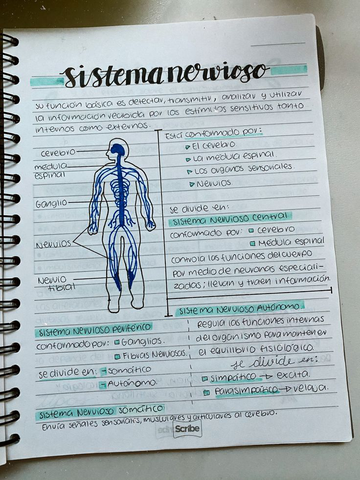 sistema nervioso
su función básica es detectar, transmitir, analizar y utilizar
la información recibida por los estímulos sensitivos tanto
internos como externos.
cerebro
médula
espinal
Ganglio
Nervios
Nervio
tibial
Está conformado por:
El cerebro
La medula espinal
Los organos sensoriales
Nervios
se divide en:
sistema Nervioso Central
conformado por: cerebro
Médula espinal
controla las funciones del cuerpo
por medio de neuronas especiali-
zadas; llevan y traen información
sistema Nervioso Periférico
conformado por: Ganglios.
Fibras Nerviosas.
se divide en: somático
Autónomo.
sistema Nervioso Autónomo
Regula las funciones internas
del organismo para mantener
el equilibrio fisiológico.
se divide en:
simpático → excita.
Parasimpático → relaja.
sistema Nervioso somático
Envía señales sensoriales, musculares y articulares al cerebro.
Scribe